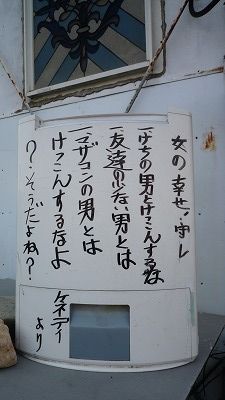 女の幸せ守レ
一けちの男とけこんするな
一友達の少ない男とは
一マザコンの男とは
けこんするなよ
？そうだよね？
ケネディ
より